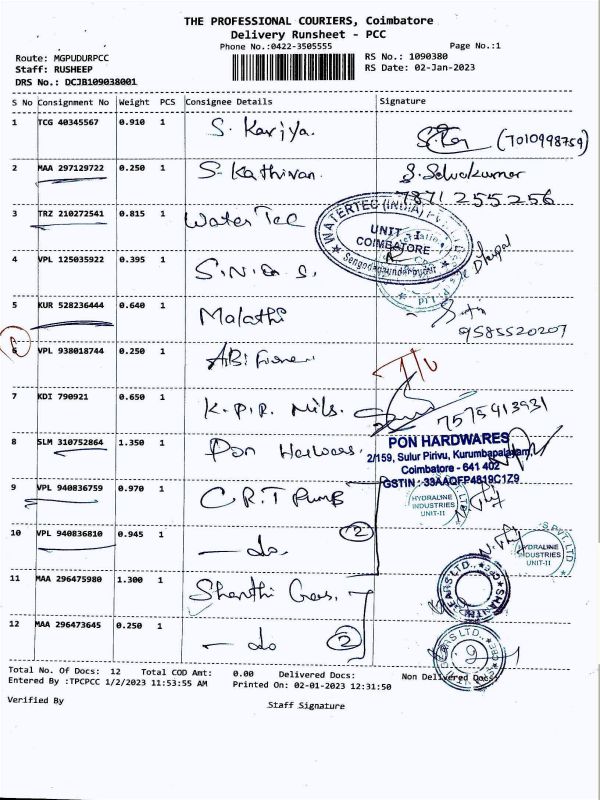 THE PROFESSIONAL COURIERS, Coimbatore
Delivery Runsheet - PCC
Phone No.:0422-3505555
Page No.:1
Route: MGPUDURPCC
RS No.: 1090380
Staff: RUSHEEP
RS Date: 02-Jan-2023
DRS No.: DCJB109038001
S No Consignment No Weight PCS Consignee Details Signature
1 TCG 40345567 0.910 1 S. Karjya. (7010998759)
2 MAA 297129722 0.250 1 S. Kathivan. S. Selvakumar
7871 255 256
3 TRZ 210272541 0.815 1 Water Tec
WATERTEC (INDIA)
UNIT I
COIMBATORE
4 VPL 125035922 0.395 1 S.N.
5 KUR 528236444 0.640 1 Malathi
9585520207
6 VPL 938018744 0.250 1 ABi
7 KDI 790921 0.650 1 K.P.R. Mills. 7575913931
8 SLM 310752864 1.350 1 Pon
PON HARDWARES
2/159, Sulur Pirivu, Kurumbapalayam,
Coimbatore - 641 402
GSTIN : 33AAQFP4819C1Z9
9 VPL 940836759 0.970 1 C.R.T Pump
HYDRALINE
INDUSTRIES
UNIT-II
10 VPL 940836810 0.945 1 - do. 2
HYDRALINE
INDUSTRIES
UNIT-II
11 MAA 296475980 1.300 1 Shanthi Gears.
12 MAA 296473645 0.250 1 - do 2
Total No. Of Docs: 12 Total COD Amt: 0.00 Delivered Docs: Non Delivered Docs:
Entered By :TPCPCC 1/2/2023 11:53:55 AM Printed On: 02-01-2023 12:31:50
Verified By
Staff Signature